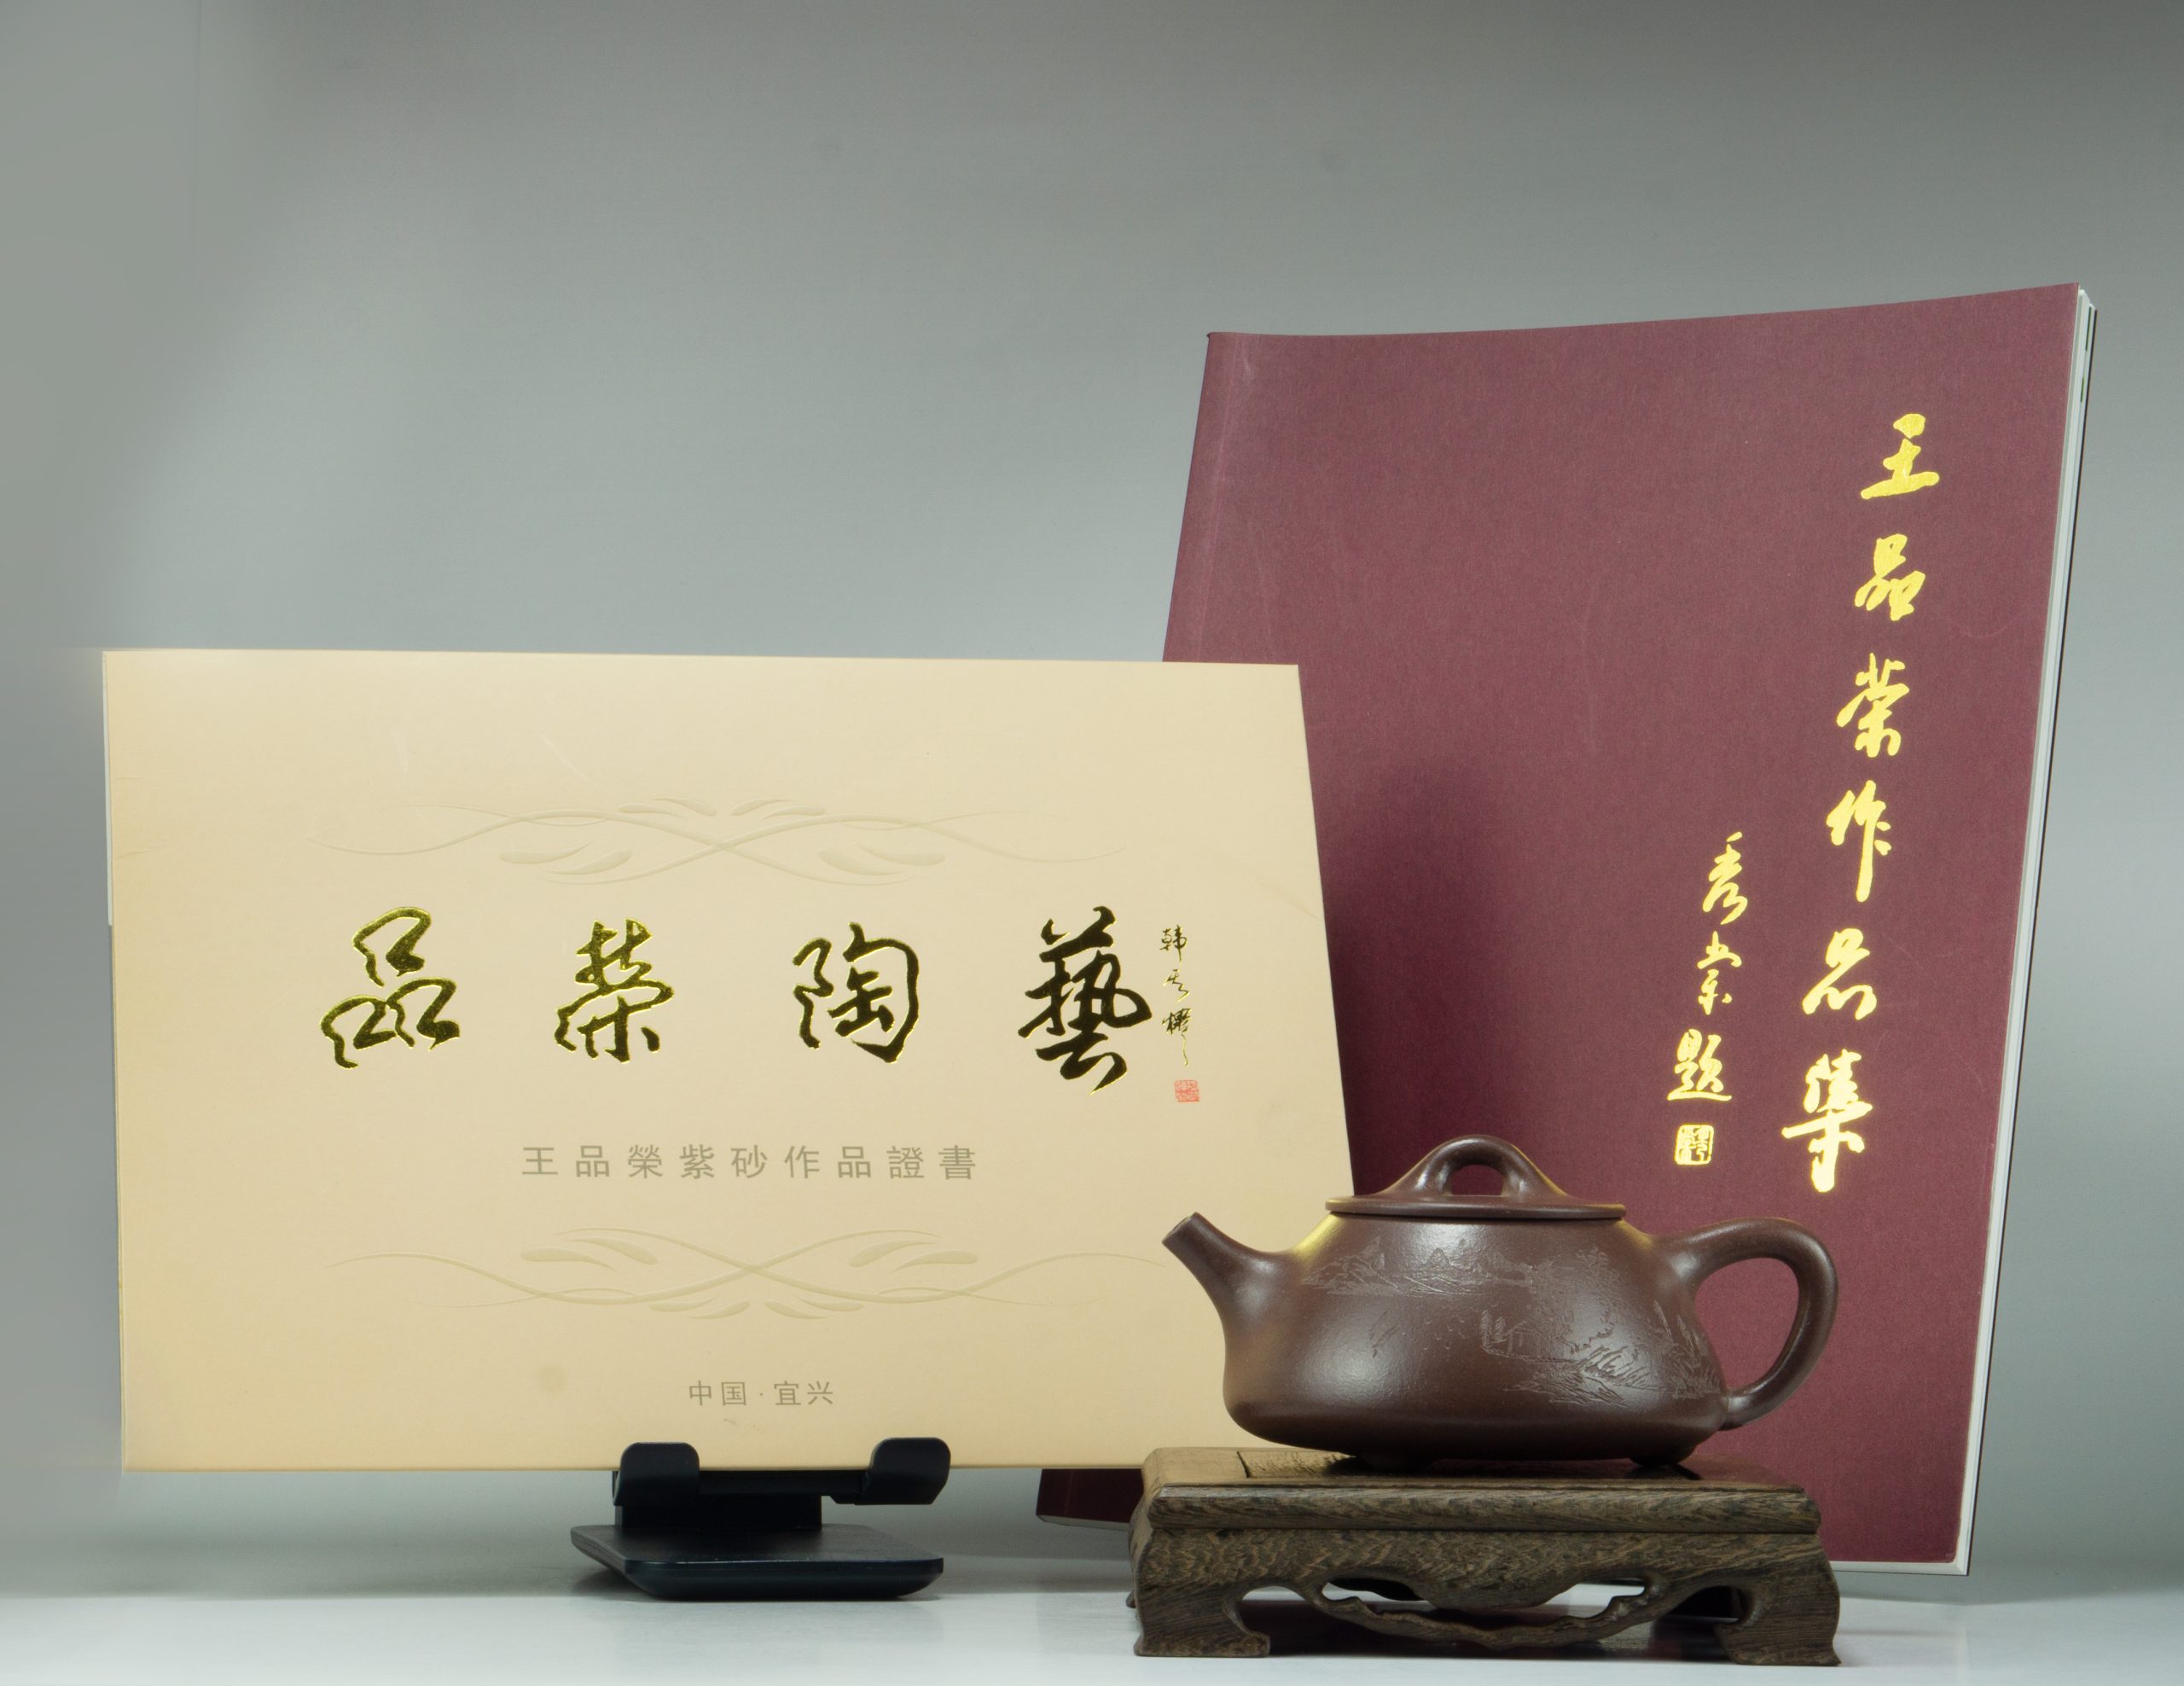 品榮陶藝
王品榮紫砂作品證書
中国·宜兴
王品荣作品集
秀棠题